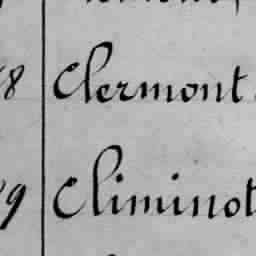 8 Clermont
9 Climinot